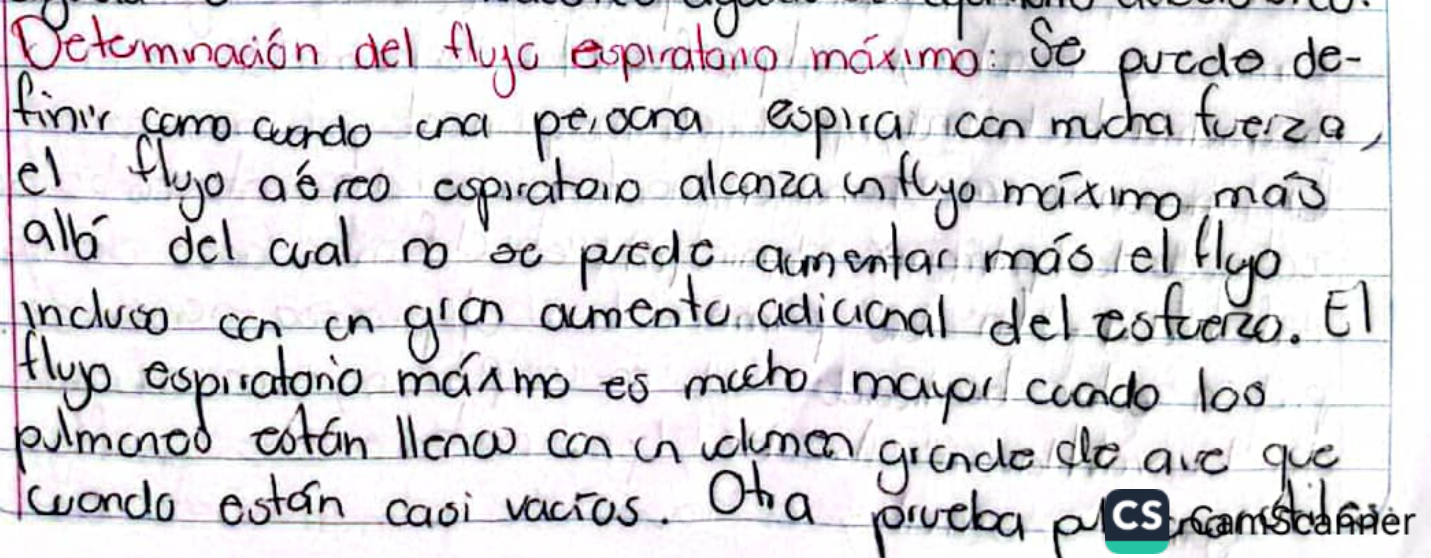 Determinación del flujo espiratorio máximo: Se puede de-
finir como cuando una persona espira con mucha fuerza,
el flujo aéreo espiratorio alcanza un flujo máximo más
allá del cual no se puede aumentar más el flujo
incluso con un gran aumento adicional del esfuerzo. El
flujo espiratorio máximo es mucho mayor cuando los
pulmones están llenos con un volumen grande de aire que
cuando están casi vacíos. Otra prueba
CS CamScanner